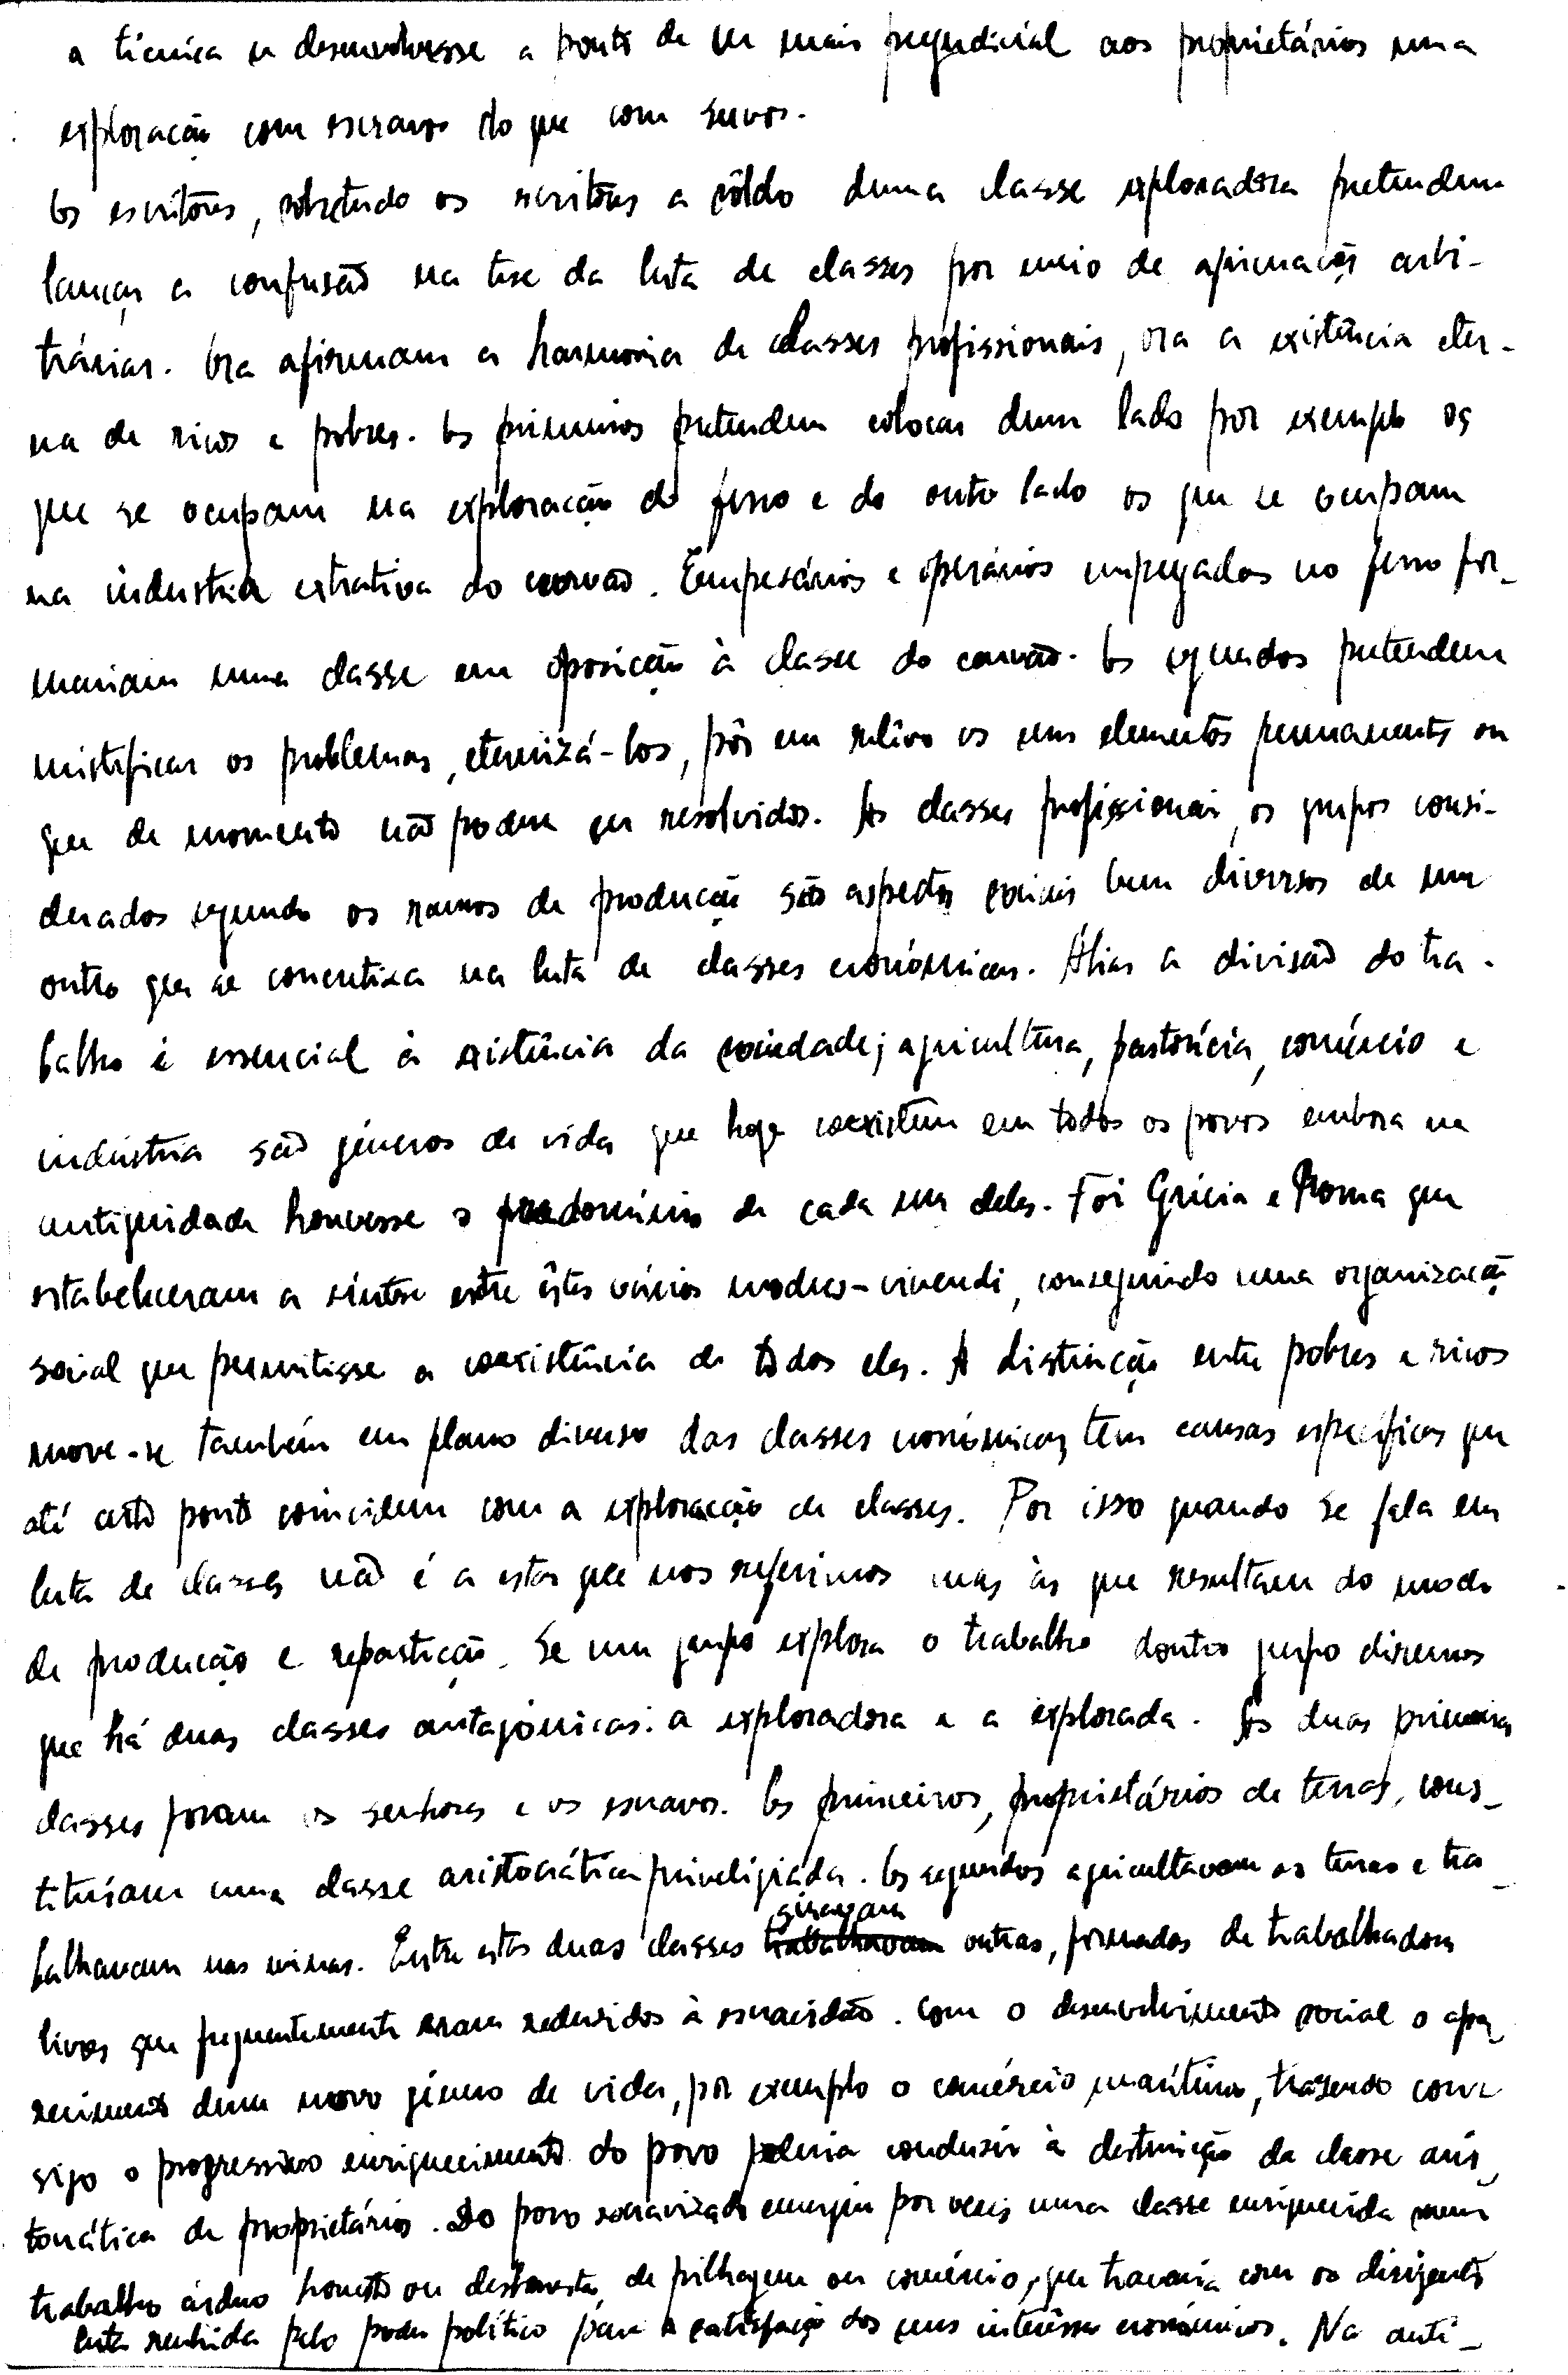 a técnica se desenvolvesse a ponto de ser mais prejudicial aos proprietários uma
exploração com escravos do que com servos.
Os escritores, sobretudo os escritores a sôldo duma classe exploradora pretendem
lançar a confusão na tese da luta de classes por meio de afirmações arbi-
trárias. Ora afirmam a harmonia de classes profissionais, ora a existência eter-
na de ricos e pobres. Os primeiros pretendem colocar dum lado por exemplo os
que se ocupam na exploração do ferro e do outro lado os que se ocupam
na indústria extrativa do carvão. Empresários e operários empregados no ferro for-
mariam uma classe em oposição à classe do carvão. Os segundos pretendem
mistificar os problemas, eternizá-los, pôr em relêvo os seus elementos permanentes ou
que de momento não podem ser resolvidos. As classes profissionais, os grupos consi-
derados segundo os ramos de produção são aspectos sociais bem diversos de um
outro que se concretiza na luta de classes económicas. Aliás a divisão do tra-
balho é essencial à existência da sociedade; agricultura, pastorícia, comércio e
indústria são géneros de vida que hoje coexistem em todos os povos embora na
antiguidade houvesse o predomínio de cada um deles. Foi Grécia e Roma que
estabeleceram a síntese entre êstes vários modus-vivendi, conseguindo uma organização
social que permitisse a coexistência de todos eles. A distinção entre pobres e ricos
move-se também em plano diverso das classes económicas, tem causas específicas que
até certo ponto coincidem com a exploração de classes. Por isso quando se fala em
luta de classes não é a estas que nos referimos mas às que resultam do modo
de produção e repartição. Se um grupo explora o trabalho doutro grupo diremos
que há duas classes antagónicas: a exploradora e a explorada. As duas primeiras
classes foram os senhores e os escravos. Os primeiros, proprietários de terras, cons-
tituíam uma classe aristocrática priveligiada. Os segundos agricultavam as terras e tra-
balhavam nas minas. Entre estas duas classes giravam outras, formadas de trabalhadores
livres que frequentemente eram reduzidos à escravidão. Com o desenvolvimento social o apa-
recimento dum novo género de vida, por exemplo o comércio marítimo, trazendo con-
sigo o progressivo enriquecimento do povo poderia conduzir à destruição da classe aris-
tocrática de proprietários. Do povo escravizado emergiu por vezes uma classe enriquecida num
trabalho árduo honesto ou desonesto, de pilhagem ou comércio, que travaria com os dirigentes
luta renhida pelo poder político para a satisfação dos seus interêsses económicos. Na anti-